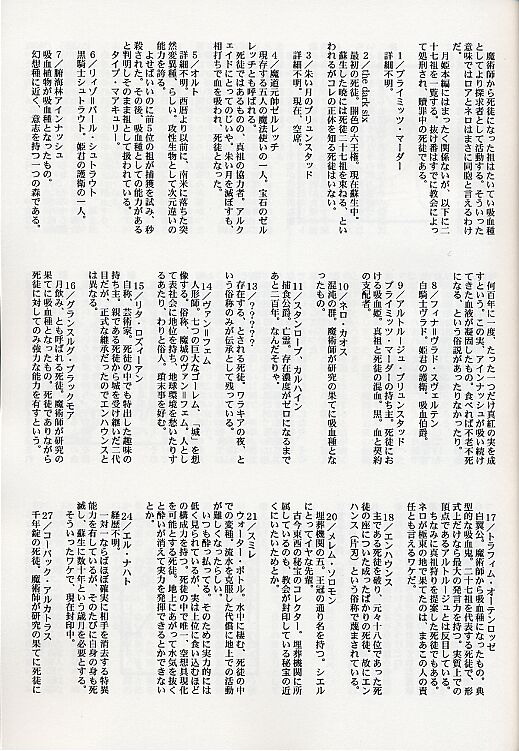 魔術師から死徒になった祖はたいてい吸血種
としてより探求者として活動する。そういった
意味ではロアとネロはまさに同胞と言えるわけ
だ。
月姫本編にはまったく関係ないが、以下に二
十七祖を一覧する。抜け番はすでに教会によっ
て処刑され、贖罪中の死徒である。
1/プライミッツ・マーダー
詳細不明。
2/the dark six
最初の死徒。闇色の六王権。現在蘇生中。
蘇生した暁には死徒二十七祖を束ねる、とい
われるがコレの正体を知る死徒はいない。
3/朱い月のブリュンスタッド
詳細不明。現在、空席。
4/魔道元帥ゼルレッチ
現存する五人の魔法使いの一人。宝石のゼル
レッチとも呼ばれる。
死徒ではあるものの、真祖の協力者。アルク
ェイドにとってのじいや。朱い月を滅ぼすも、
相打ちで血を吸われ、死徒となった。
5/オルト
詳細不明。西暦より以前に、南米に落ちた突
然変異種、らしい。攻性生物として次元違いの
能力を誇る。
よせばいいのに前5位の祖が捕獲を試み、秒
殺された。その後、吸血種としての能力がある
と判明しそのまま祖として扱われている。
タイプ・マアキュリー。
6/リィゾ=バール・シュトラウト
黒騎士シュトラウト。姫君の護衛の一人。
7/腑海林アインナッシュ
吸血植物が吸血種となったもの。
幻想種に近く、意志を持つ一つの森である。
何百年に一度、たった一つだけ真紅の実を成
すという。この実、アインナッシュが吸い続け
てきた血液が凝固したもの。食べれば不老不死
になる、という俗説があったりなかったり。
8/フィナ=ヴラド・スヴェルテン
白騎士ヴラド。姫君の護衛。吸血伯爵。
9/アルトルージュ・ブリュンスタッド
プライミッツ・マーダーの持ち主。死徒にお
ける吸血姫。真祖と死徒の混血。黒、血と契約
の支配者。
10/ネロ・カオス
混沌の群。魔術師が研究の果てに吸血種とな
ったもの。
11/スタンローブ・カルハイン
捕食公爵。亡霊。存在濃度がゼロになるまで
あと二百年。なんだそりゃ。
13/?????
存在する、とされる死徒。ワラキアの夜、と
いう俗称のみが伝承として残っている。
14/ヴァン=フェム
人形師。七つの巨大なゴーレム、「城」を想
像する。俗称、魔城のヴァン=フェム。人とし
て表社会に地位を持ち、地球環境を愁いたりす
るあたり、わりと俗人、瑣末事を好む。
15/リタ・ロズィーアン
自称、芸術家。死徒の中でも特出した趣味の
持ち主。親である死徒から城を受け継いだ二代
目だが、正式な継承だったのでエンハウンスと
は異なる。
16/グランスルグ・ブラックモア
月飲み、とも呼ばれる死徒。魔術師が研究の
果てに吸血種となったもの。死徒でありながら
死徒に対してのみ強力な能力を有すという。
17/トラフィム・オーテンロッゼ
白翼公。魔術師から吸血種になったもの。典
型的な吸血鬼。二十七祖を代表する死徒で、形
式上だけなら最大の発言力を持つ。実質上での
頂点であるアルトルージュとは反目している。
ちなみに真祖狩りを提案した死徒でもある。
ネロが極東の地で果てたのは、まあこの人の責
任とも言えるワケだ。
18/エンハウンス
主である死徒を破り、元々十八位であった死
徒の座についた成り立ばかりの死徒。故にエン
ハンス(片刃)という俗称で蔑まされている。
20/メレム・ソロモン
埋葬機関の五。王冠の通り名を持つ。シエル
にとってイヤな先輩。
古今東西の秘宝のコレクター。埋葬機関に所
属しているのも、教会が封印している秘宝の近
くにいたいためとか。
21/スミレ
ウォーター・ボトル。水中に棲む、死徒の中
での変種。流水を克服した代償に地上での活動
が難しくなったらしい。
いつも酔っ払ってる。そのために実力的には
低く見られているが、実は上位に食い込むほど
の構成力を持つ。死徒の中で唯一、空想具現化
を可能とする死徒。地上にあがって水気を抜く
と酔いが消えて実力を発揮できるとかできない
とか。
24/エル・ナハト
経歴不明。
一対一ならばほぼ確実に相手を消去する特異
能力を有しているが、そのたびに自身の身も死
滅し、蘇生に数十年という歳月を必要とする。
そういったワケで、現在封印中。
27/コーバック・アルカトラス
千年錠の死徒。魔術師が研究の果てに死徒に